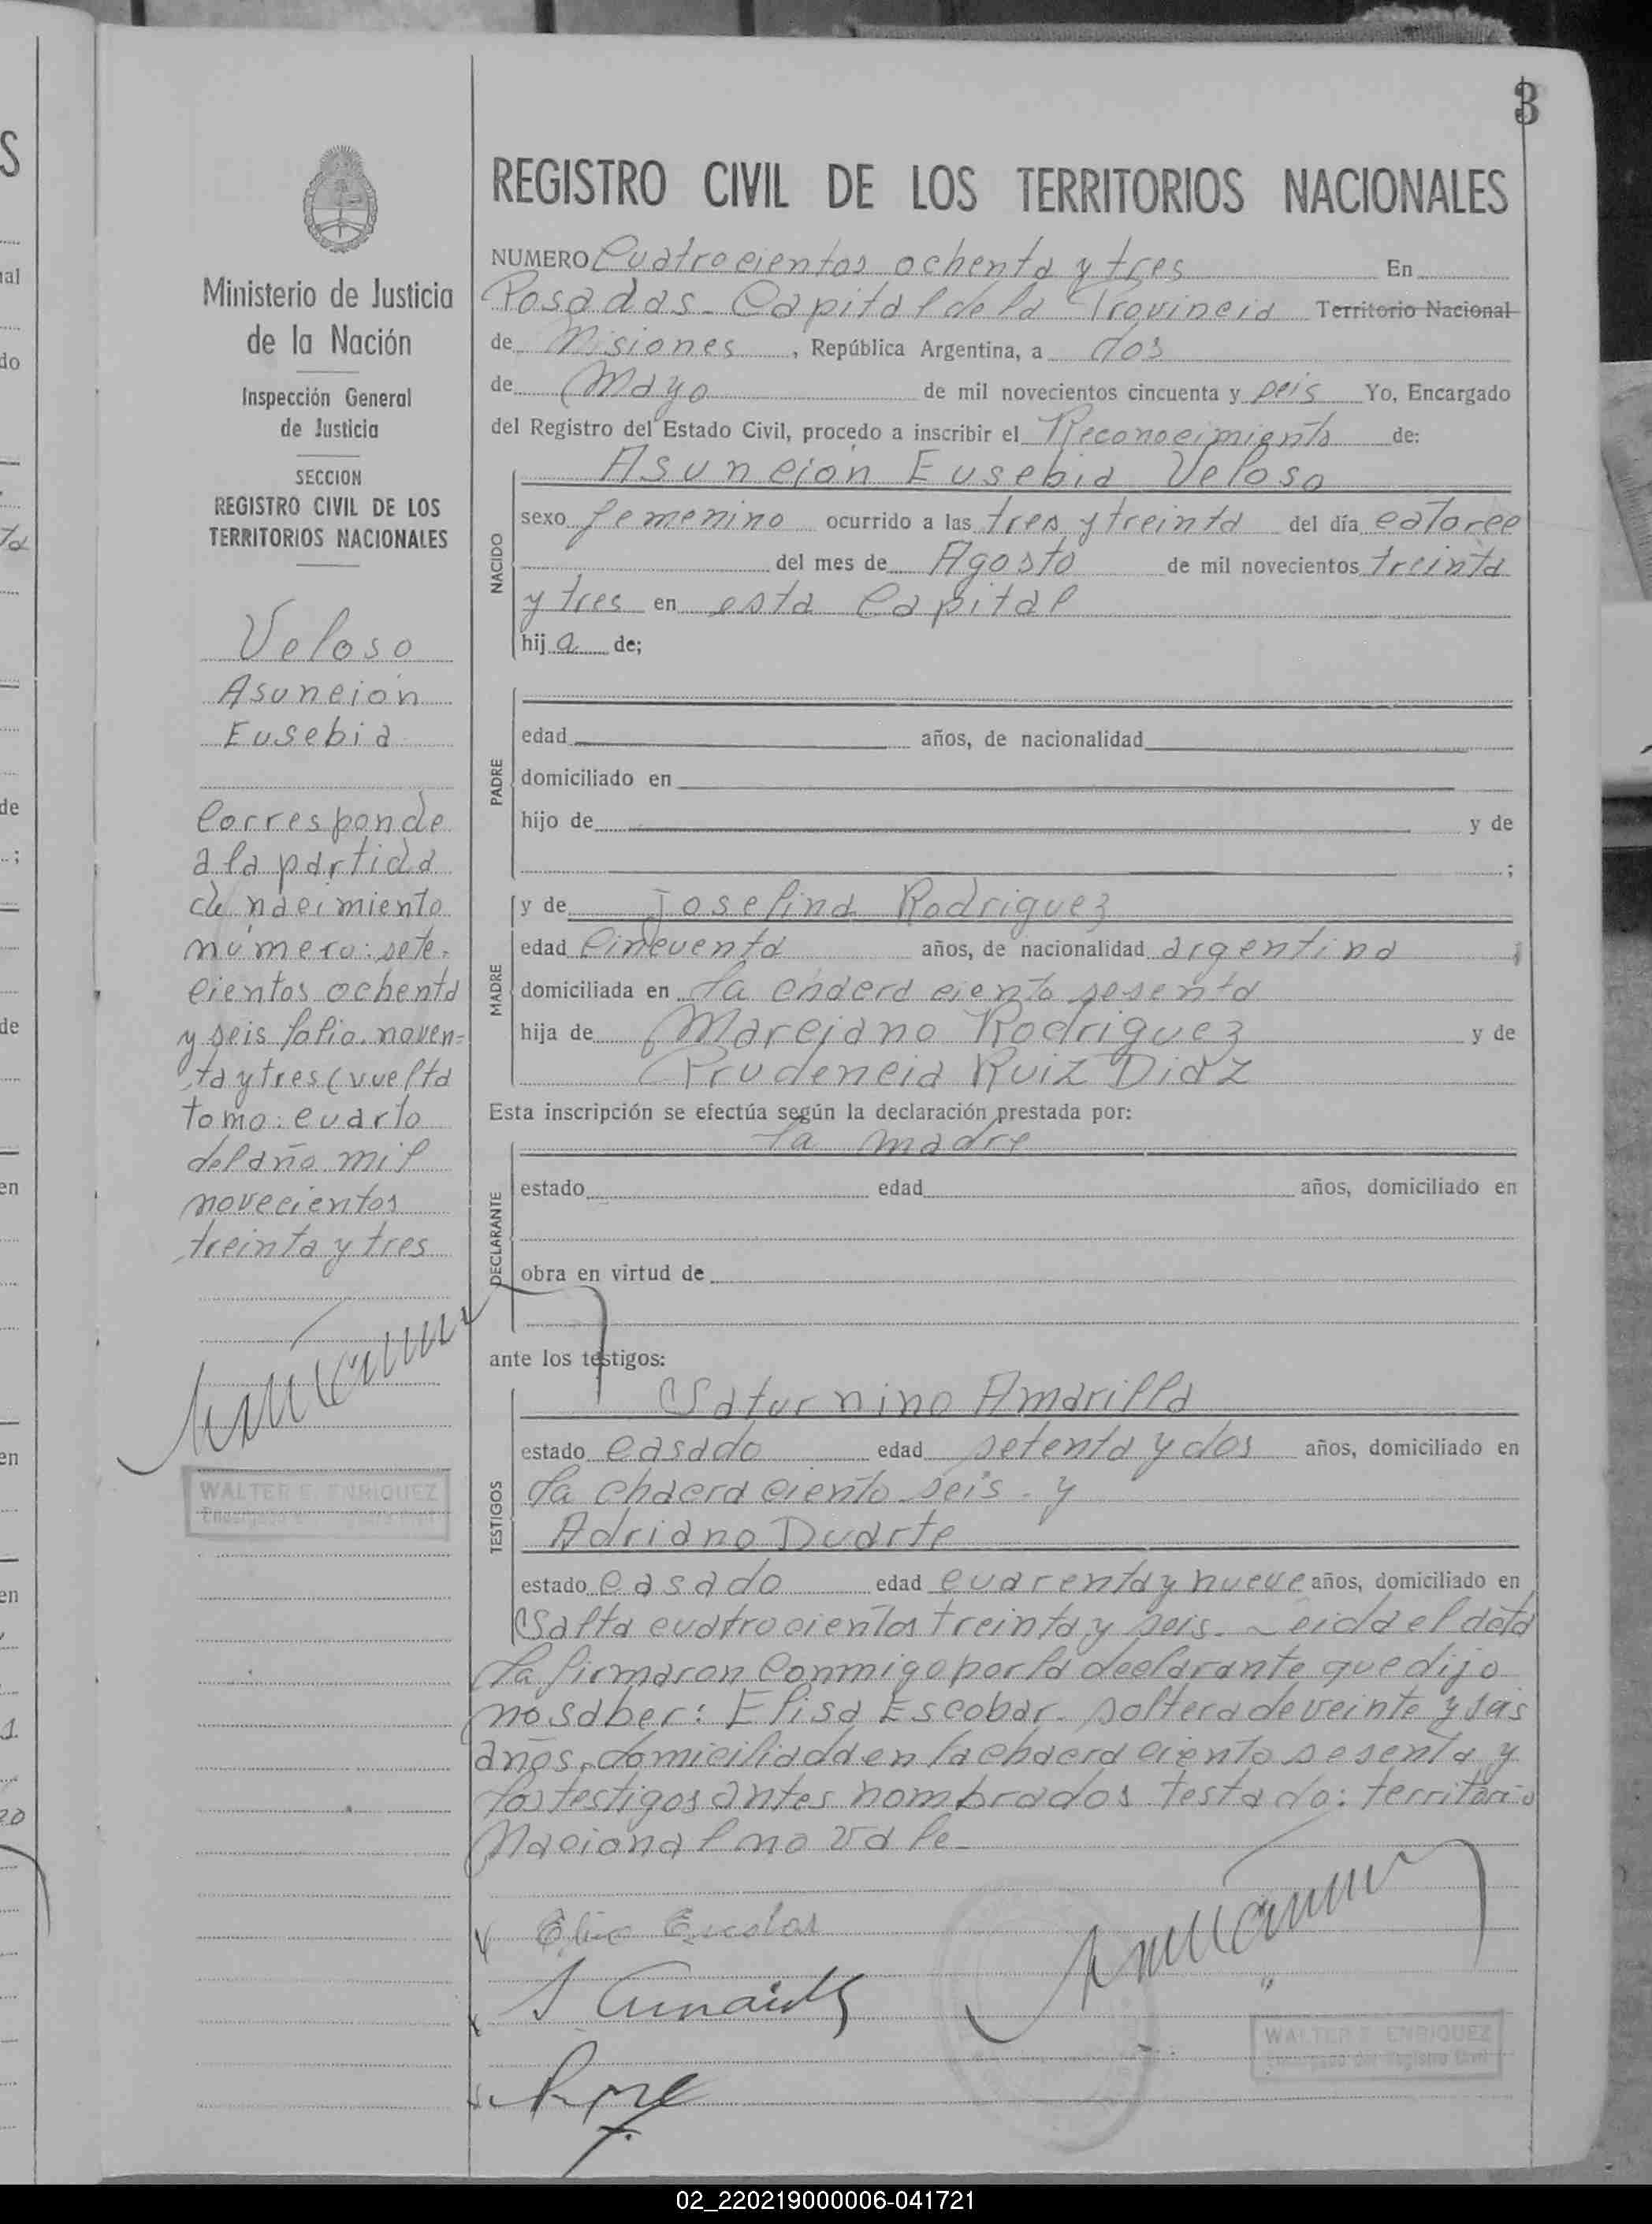 3
REGISTRO CIVIL DE LOS TERRITORIOS NACIONALES
Ministerio de Justicia
de la Nación
Inspección General
de Justicia
SECCION
REGISTRO CIVIL DE LOS
TERRITORIOS NACIONALES
Veloso
Asunción
Eusebia
Corresponde
a la partida
de nacimiento
número: sete-
cientos ochenta
y seis folio. noven=
ta y tres (vuelta
tomo: cuarto
del año mil
novecientos
treinta y tres
WALTER E. ENRIQUEZ
NUMERO Cuatrocientos ochenta y tres En
Posadas - Capital de la Provincia Territorio Nacional
de Misiones, República Argentina, a dos
de Mayo de mil novecientos cincuenta y seis Yo, Encargado
del Registro del Estado Civil, procedo a inscribir el Reconocimiento de:
Asunción Eusebia Veloso
NACIDO
sexo femenino ocurrido a las tres y treinta del día catorce
del mes de Agosto de mil novecientos treinta
y tres en esta Capital
hija de;
PADRE
edad años, de nacionalidad
domiciliado en
hijo de y de
;
y de Josefina Rodriguez
MADRE
edad Cincuenta años, de nacionalidad argentina
domiciliada en la chacra ciento sesenta
hija de Marciano Rodriguez y de
Prudencia Ruiz Diaz
Esta inscripción se efectúa según la declaración prestada por:
la madre
DECLARANTE
estado edad años, domiciliado en
obra en virtud de
ante los testigos:
Saturnino Amarilla
TESTIGOS
estado casado edad setenta y dos años, domiciliado en
la chacra ciento seis - y
Adriano Duarte
estado casado edad cuarenta y nueve años, domiciliado en
Salta cuatrocientos treinta y seis - Leida el acta
la firmaron conmigo por la declarante que dijo
no saber: Elisa Escobar - soltera de veinte y seis
años, domiciliada en la chacra ciento sesenta y
los testigos antes nombrados testado: territorio
Nacional no vale -
Elisa Escobar
WALTER E. ENRIQUEZ
Encargado del Registro Civil
02_220219000006-041721